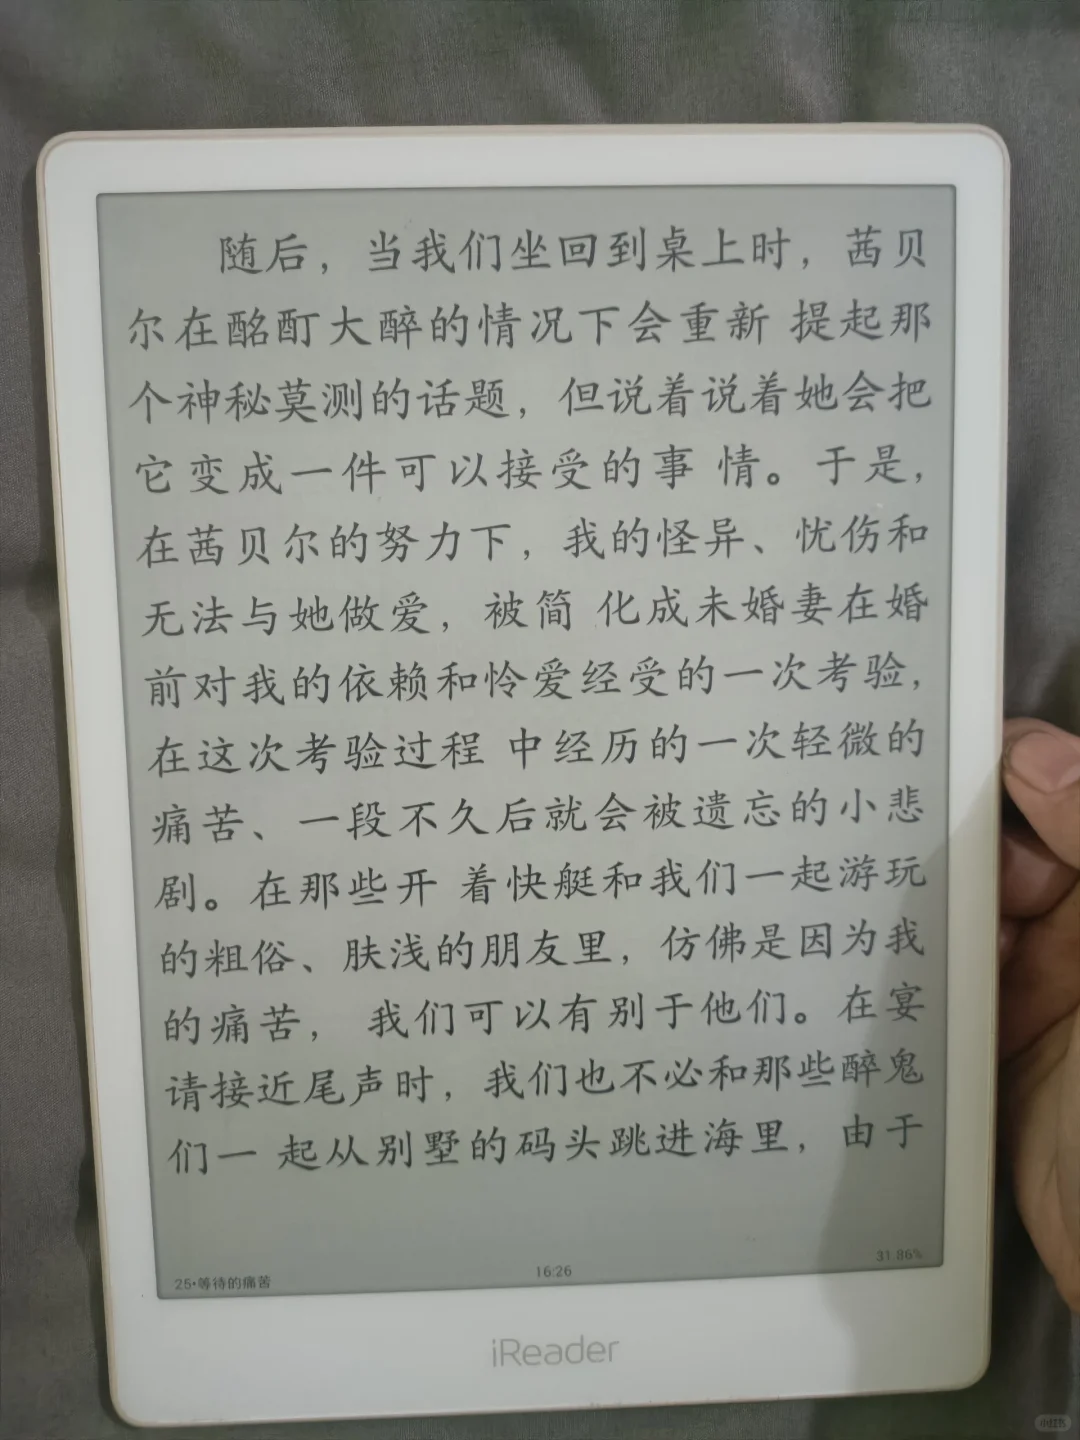 随后，当我们坐回到桌上时，茜贝
尔在酩酊大醉的情况下会重新 提起那
个神秘莫测的话题，但说着说着她会把
它变成一件可以接受的事 情。于是，
在茜贝尔的努力下，我的怪异、忧伤和
无法与她做爱，被简 化成未婚妻在婚
前对我的依赖和怜爱经受的一次考验，
在这次考验过程 中经历的一次轻微的
痛苦、一段不久后就会被遗忘的小悲
剧。在那些开 着快艇和我们一起游玩
的粗俗、肤浅的朋友里，仿佛是因为我
的痛苦， 我们可以有别于他们。在宴
请接近尾声时，我们也不必和那些醉鬼
们一 起从别墅的码头跳进海里，由于
25·等待的痛苦 16:26 31.86%
iReader
小红书